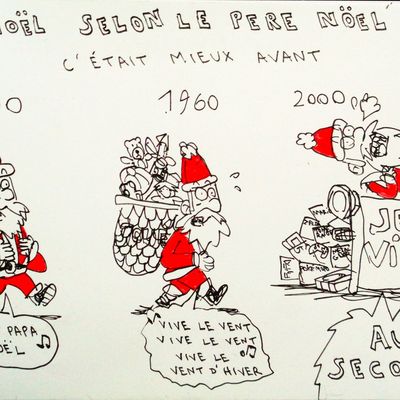 NOËL SELON LE PERE NÖEL
C'ÉTAIT MIEUX AVANT
0
1960
2000
JOUE
JE
VI
PAPA
OËL
VIVE LE VENT
VIVE LE VENT
VIVE LE
VENT D'HIVER
AU
SECO